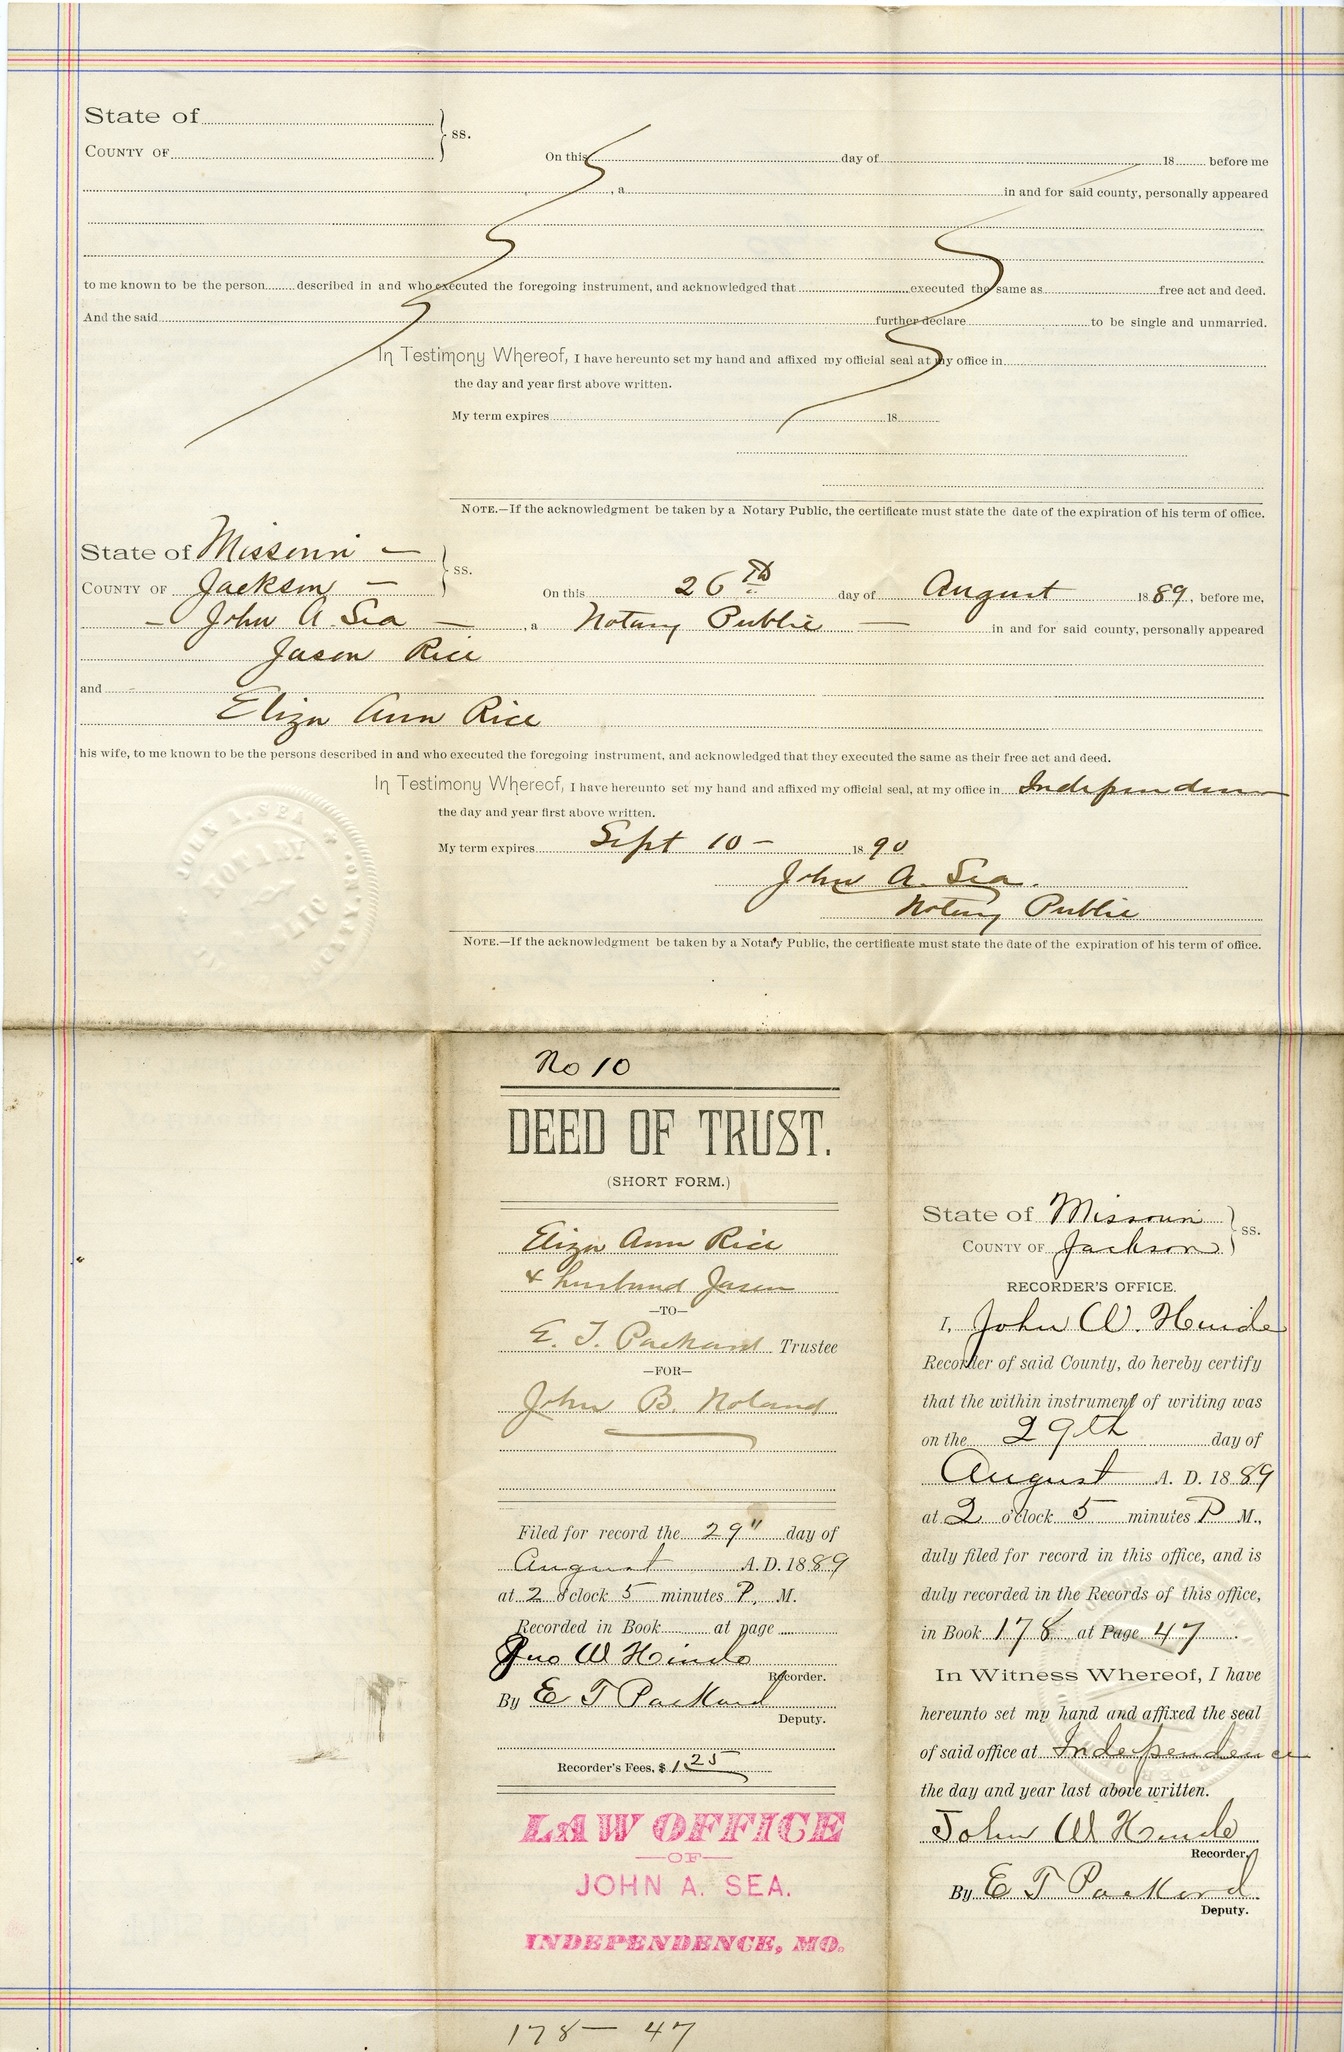 State of
COUNTY OF
} ss.
On this day of 18 before me
, a in and for said county, personally appeared
to me known to be the person described in and who executed the foregoing instrument, and acknowledged that executed the same as free act and deed.
And the said further declare to be single and unmarried.
In Testimony Whereof, I have hereunto set my hand and affixed my official seal at my office in
the day and year first above written.
My term expires 18
NOTE.—If the acknowledgment be taken by a Notary Public, the certificate must state the date of the expiration of his term of office.
State of Missouri —
COUNTY OF Jackson —
} ss.
On this 26TH day of August 1889, before me,
— John A Sea — , a Notary Public — in and for said county, personally appeared
Jason Rice
and
Eliza Ann Rice
his wife, to me known to be the persons described in and who executed the foregoing instrument, and acknowledged that they executed the same as their free act and deed.
In Testimony Whereof, I have hereunto set my hand and affixed my official seal, at my office in Independence
the day and year first above written.
My term expires Sept 10 — 1890
John A. Sea.
Notary Public
JOHN A. SEA
NOTARY
NOTE.—If the acknowledgment be taken by a Notary Public, the certificate must state the date of the expiration of his term of office.
No 10
DEED OF TRUST.
(SHORT FORM.)
Eliza Ann Rice
& husband Jason
—TO—
E. T. Packard Trustee
—FOR—
John B. Noland
Filed for record the 29" day of
August A. D. 1889
at 2 o'clock 5 minutes P. M.
Recorded in Book at page
Jno W Hinde
Recorder.
By E T Packard
Deputy.
Recorder's Fees, $ 1.25
LAW OFFICE
—OF—
JOHN A. SEA.
INDEPENDENCE, MO.
178 — 47
State of Missouri
COUNTY OF Jackson
} ss.
RECORDER'S OFFICE.
I, John W. Hinde
Recorder of said County, do hereby certify
that the within instrument of writing was
on the 29th day of
August A. D. 1889
at 2 o'clock 5 minutes P M.,
duly filed for record in this office, and is
duly recorded in the Records of this office,
in Book 178 at Page 47.
In Witness Whereof, I have
hereunto set my hand and affixed the seal
of said office at Independence
the day and year last above written.
John W Hinde
Recorder,
By E T Packard
Deputy.